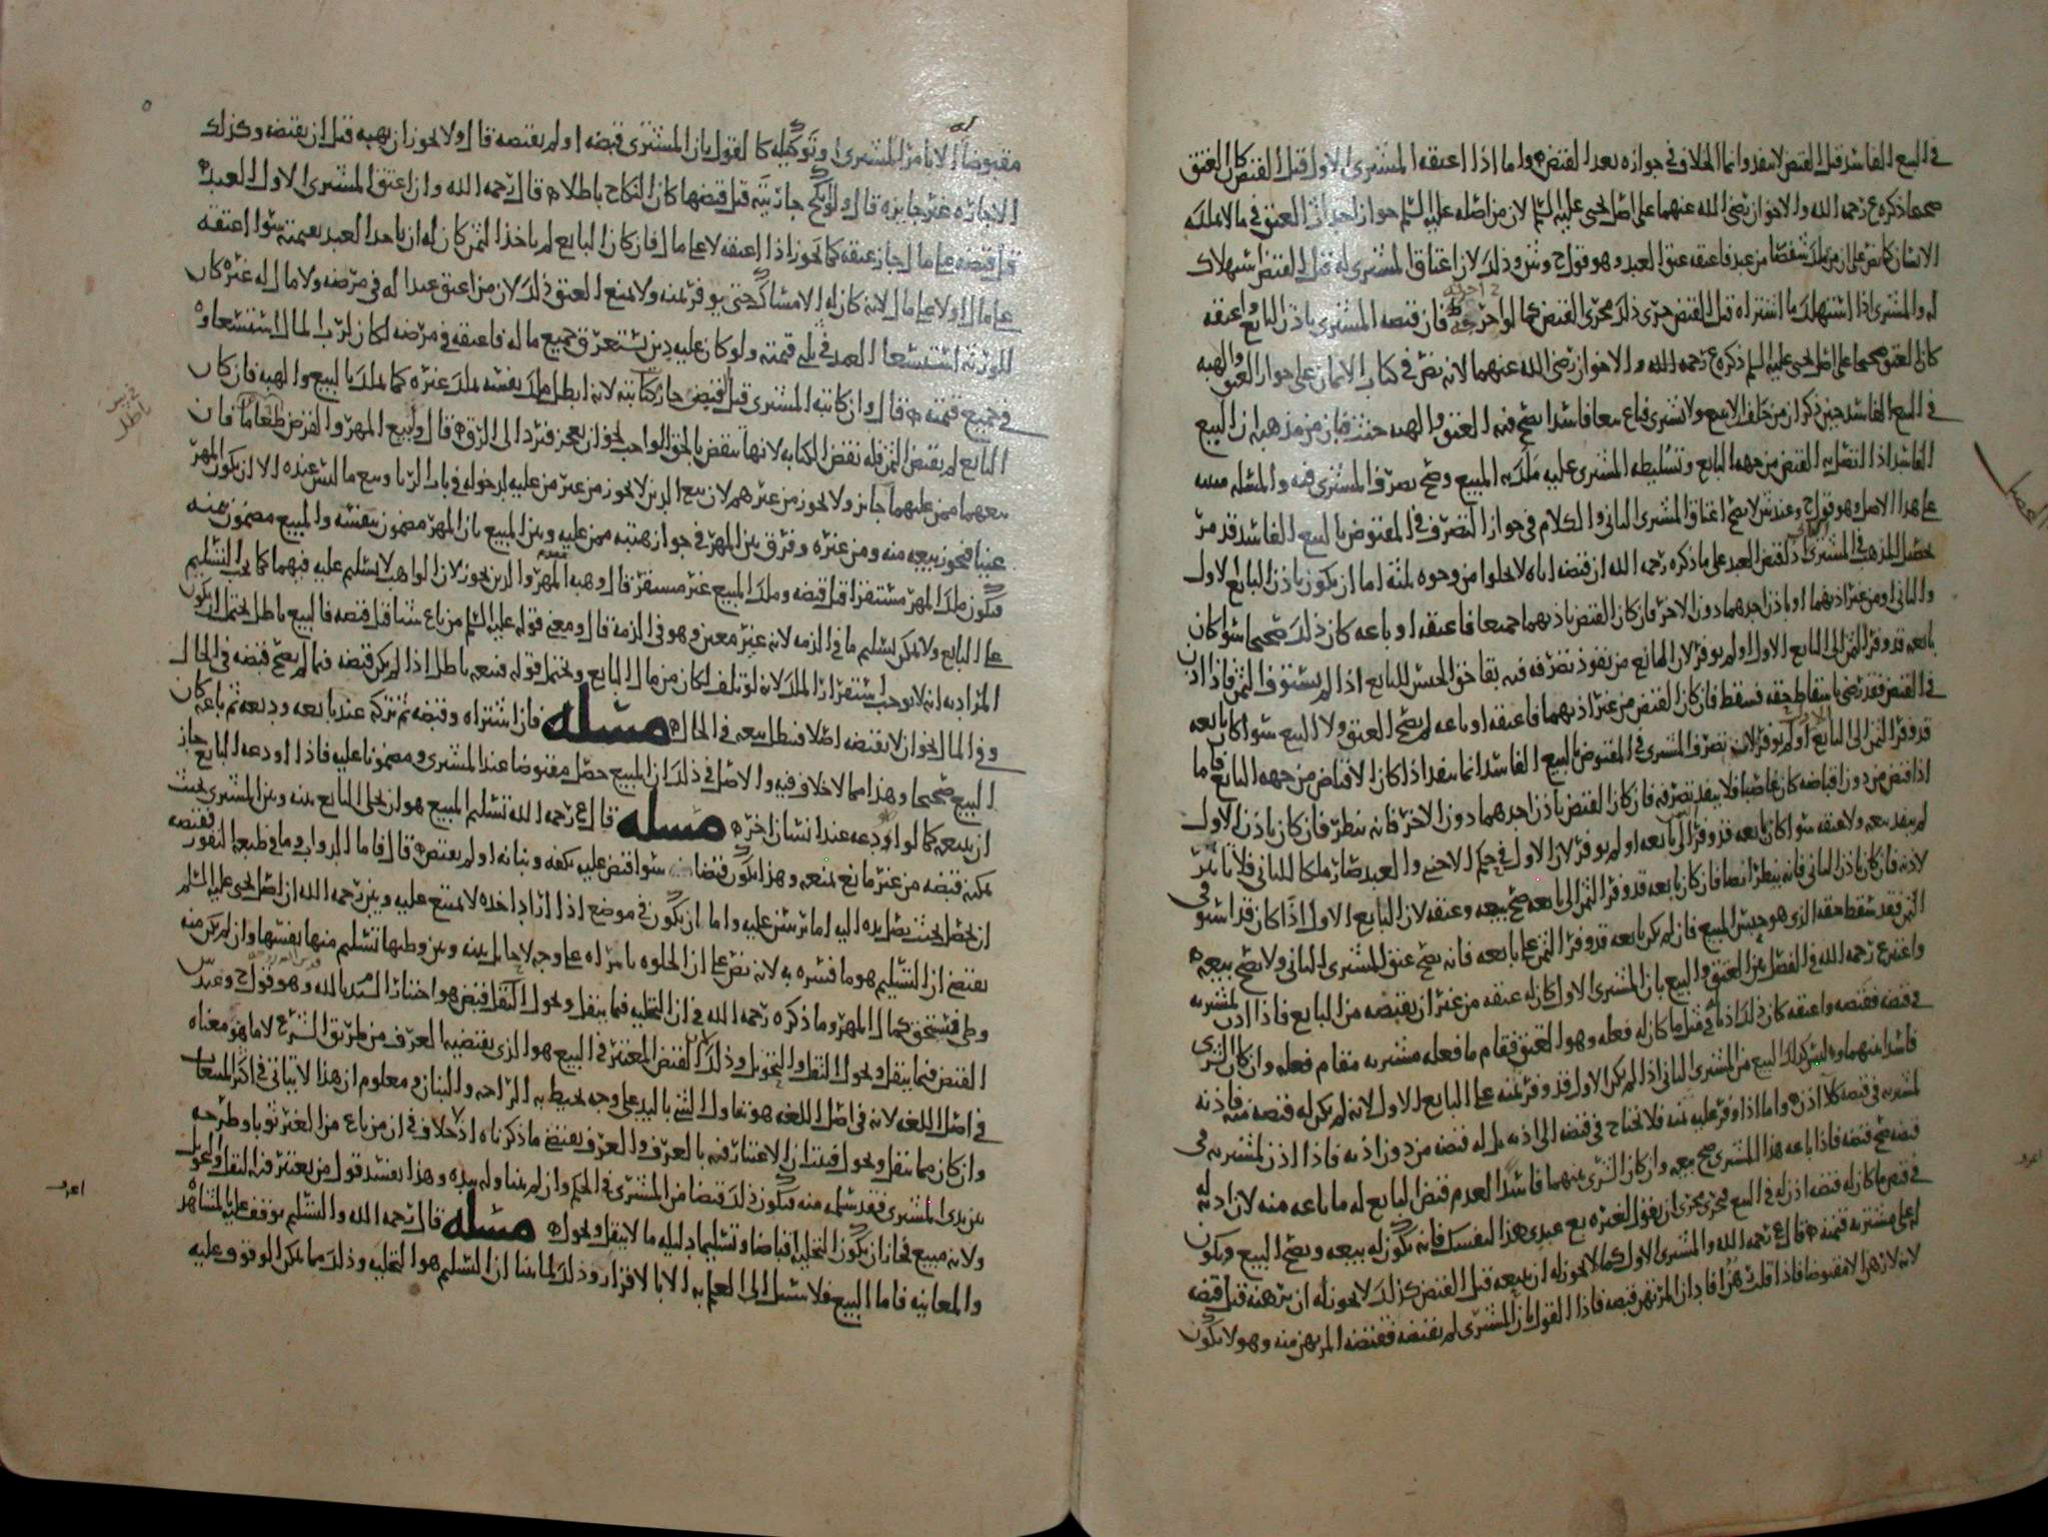 في البيع الفاسد قبل القبض لا ينفذ وانما الخلاف في جوازه بعد القبض واما اذا اعتقه المشتري الاول قبل القبض كان العتق
صحيحا ذكره ع رحمه الله والاخوان رضي الله عنهما على اصل يحيى عليه السلم لان من اصله عليه السلم جواز العتق في ما لا يملكه
الانسان كما نص على ان من يملك شقصا من عبد فاعتقه عتق العبد وهو قول ح وش وذلك لان اعتاق المشتري له قبل القبض استهلاك
له والمشتري اذا استهلك ما اشتراه قبل القبض جرى ذلك مجرى القبض كما لو فان قبضه المشتري باذن البايع واعتقه
كان العتق صحيحا على اصل يحيى عليه السلم ذكره ع رحمه الله والاخوان رضي الله عنهما لانه نص في كتاب الايمان على جواز العتق والهبه
في البيع الفاسد حين ذكر ان من حلف لا يبيع ولا يشتري فباع بيعا فاسدا يصح فيه العتق والهبه حنث فبان من مذهبه ان البيع
الفاسد اذا اتصل به القبض من جهه البايع وتسليطه المشتري عليه ملك به المبيع وصح تصرف المشتري فيه والمسله مبنيه
على هذا الاصل وهو قول ح وعند ش لا يصح اعتاق المشتري الثاني والكلام في جواز التصرف في المقبوض بالبيع الفاسد قد مر
تحصيل المذهب في المشتري لقبض العبد على ما ذكره رحمه الله ان قبضه اياه لا يخلوا من وجوه ثلثه اما ان يكون باذن البايع الاول
والثاني او من غير اذنهما او باذن احدهما دون الاخر فان كان القبض باذنهما جميعا فاعتقه او باعه كان ذلك صحيحا سوا كان
بايعه قد وفر الثمن الى البايع الاول او لم يوفر لان المانع من نفوذ تصرفه فيه بقا حق الحبس للبايع اذا لم يستوف الثمن فاذا اذن
في القبض فقد رضي باسقاط حقه فسقط فان كان القبض من غير اذنهما فاعتقه او باعه لم يصح العتق ولا البيع سوا كان بايعه
قد وفر الثمن الى البايع او لم يوفر لان تصرف المشتري في المقبوض بالبيع الفاسد انما ينفذ اذا كان الاقباض من جهه البايع فاما
اذا قبض من دون اقباضه كان غاصبا فلا ينفذ تصرفه فان كان القبض باذن احدهما دون الاخر فانه ينظر فان كان باذن الاول
لم ينفذ بيعه ولا عتقه سوا كان بايعه قد وفر الى بايعه او لم يوفر لان الاول في حكم الاجنبي والعبد صار ملكا للثاني فلا تاثير
لاذنه فان كان باذن الثاني فانه ينظر ايضا فان كان بايعه قد وفر الثمن الى بايعه صح بيعه وعتقه لان البايع الاول اذا كان قد استوفى
الثمن فقد سقط حقه الذي هو حبس المبيع فان لم يكن بايعه قد وفر الثمن على بايعه فانه يصح عتق المشتري الثاني ولا يصح بيعه
واعترض ع رحمه الله في الفصل بين العتق والبيع بان المشتري الاول كان له عتقه من غير ان يقبضه من البايع فاذا اذن لمشتريه
في قبضه فقبضه واعتقه كان ذلك اذنا في مثل ما كان له فعله وهو العتق فقام ما فعله مشتريه مقام فعله وان كان الشرى
فاسدا بينهما وليس كذلك البيع من المشتري الثاني اذا لم يكن الاول قد وفر ثمنه على البايع الاول لانه لم يكن له قبضه منه فاذنه
لمشتريه في قبضه كلا اذن واما اذا وفر عليه ثمنه فلا يحتاج في قبضه الى اذنه بل له قبضه من دون اذنه فاذا اذن لمشتريه في
قبضه صح قبضه فاذا باعه هذا المشتري صح بيعه وان كان الشرى بينهما فاسدا لعدم قبض البايع له ما باعه منه لان اذنه له
في قبض ما كان له قبضه اذن له في البيع فجرى مجرى ان يقول لغيره بع عبدي هذا لنفسك فانه يكون له بيعه ويصح البيع ويكون
له على مشتريه قيمته قال ع رحمه الله والمشتري الاول كما لا يجوز له ان يبيعه قبل القبض كذلك لا يجوز له ان يرهنه قبل قبضه
لانه لا رهن الا مقبوضا فاذا قلت هذا فاد ان المرتهن قبضه فاذا القول بان المشتري لم يقبضه فقبضه المرتهن منه وهو لا يكون
الفصل
مقبوضا الا بامر المشتري له وتوكيله كالقول بان المشتري قبضه او لم يقبضه قال ولا يجوز ان يهبه قبل ان يقبضه وكذلك
الاجاره غير جايزه قال ولو نكح جاريته قبل قبضها كان النكاح باطلا قال رحمه الله وان اعتق المشتري الاول العبد
قبل قبضه على مال جاز عتقه كما يجوز اذا اعتقه لا على مال فان كان البايع لم ياخذ الثمن كان له ان ياخذ العبد بقيمته سوا اعتقه
على مال او لا على مال لانه كان له الامساك حتى يوفر ثمنه ولا يمنع العتق ذلك لان من اعتق عبدا له في مرضه ولا مال له غيره كان
للورثه استسعا العبد في ثلثي قيمته ولو كان عليه دين يستغرق جميع ماله فاعتقه في مرضه لكان لرب المال استسعاؤه
في جميع قيمته قال وان كاتبه المشتري قبل القبض جاز كتابته لانه ابطل ملك نفسه بملك غيره كما يملك بالبيع والهبه فان كان
البايع لم يقبض الثمن فله نقض الكتابه لانها تنقض بالحق الواجب نحو ان يعجز فيرد الى الرق قال وبيع المهر والقرض طعاما فان
بيعهما ممن عليهما جايز ولا يجوز من غيرهم لان بيع الدين لا يجوز من غير من عليه لدخوله في باب الربا وبيع ما ليس عنده الا ان يكون المهر
عينا فيجوز بيعه منه ومن غيره وفرق بين المهر في جواز هبته ممن عليه وبين المبيع بان المهر مضمون بنفسه والمبيع مضمون بثمنه
فيكون ملك المهر مستقرا قبل قبضه وملك المبيع غير مستقر قال وهبه المهر والدين يجوز لان الواهب لا تسليم عليه فيهما كما يجب التسليم
على البايع ولا يمكن تسليم ما في الذمه لانه غير معين وهو في الذمه قال ومعنى قوله عليه السلم من باع شيا قبل قبضه فالبيع باطل يحتمل ان يكون
المراد به انه لا يوجب استقرار الملك لانه لو تلف لكان من مال البايع ويحتمل قوله فبيعه باطل اذا لم يكن قبضه فيما لم يصح قبضه في الحال
وفي المال نحو ان لا يقبضه اصلا فيبطل بيعه في الحال مسله فان اشتراه وقبضه ثم تركه عند بايعه وديعه ثم باعه كان
البيع صحيحا وهذا مما لا خلاف فيه والاصل في ذلك ان المبيع حصل مقبوضا عند المشتري ومضمونا عليه فاذا اودعه البايع جاز
ان يبيعه كما لو اودعه عند انسان اخر مسله قال ع رحمه الله تسليم المبيع هو ان يخلي البايع بينه وبين المشتري بحيث
يمكنه قبضه من غير مانع يمنعه وهذا يكون قبضا سوا قبض عليه بكفه وبنانه او لم يقبض قال فاما الدواب وما في طبعه النفور فقبضه
ان يحصل بحيث يصل يده اليه اما برسن عليه واما ان يكون في موضع اذا اراد اخذه لا يمتنع عليه وبين رحمه الله ان اصل يحيى عليه السلم
يقتضي ان التسليم هو ما فسره به لانه نص على ان الخلوه بامراه على وجه لا حايل بينه وبين وطيها تسليم منها نفسها وان لم يكن منه
وطي فتستحق كمال المهر وما ذكره رحمه الله في ان التخليه فيما ينقل ويحول كالنقل قبض هو اختيار السيد بالله وهو قول ح وعند ش
القبض فيما ينقل ويحول النقل والتحويل وذلك لان القبض المعتبر في البيع هو الذي يقتضيه العرف من طريق الشرع لا ما هو معناه
في اصل اللغه لانه في اصل اللغه هو تناول الشي باليد على وجه يحيط به الراحه والبنان ومعلوم ان هذا لا يتاتى في اكثر المبيعات
وان كان مما ينقل ويحول فثبت ان الاعتبار فيه بالعرف والعرف يقتضي ما ذكرناه اذ لا خلاف في ان من باع من الغير ثوبا وطرحه
بين يدي المشتري فقد سلمه منه فيكون ذلك قبضا من المشتري في الحكم وان لم يتناوله بيده وهذا يفسد قول من يعتبر فيه النقل والتحويل
ولانه مبيع فجاز ان يكون التخليه اقباضا وتسليما دليله ما لا ينقل ويحول مسله قال رحمه الله والتسليم يوقف عليه بالمشاهده
والمعاينه فاما البيع فلا سبيل الى العلم به الا بالاقرار وذلك لما بينا ان التسليم هو التخليه وذلك مما يمكن الوقوف عليه
باطل